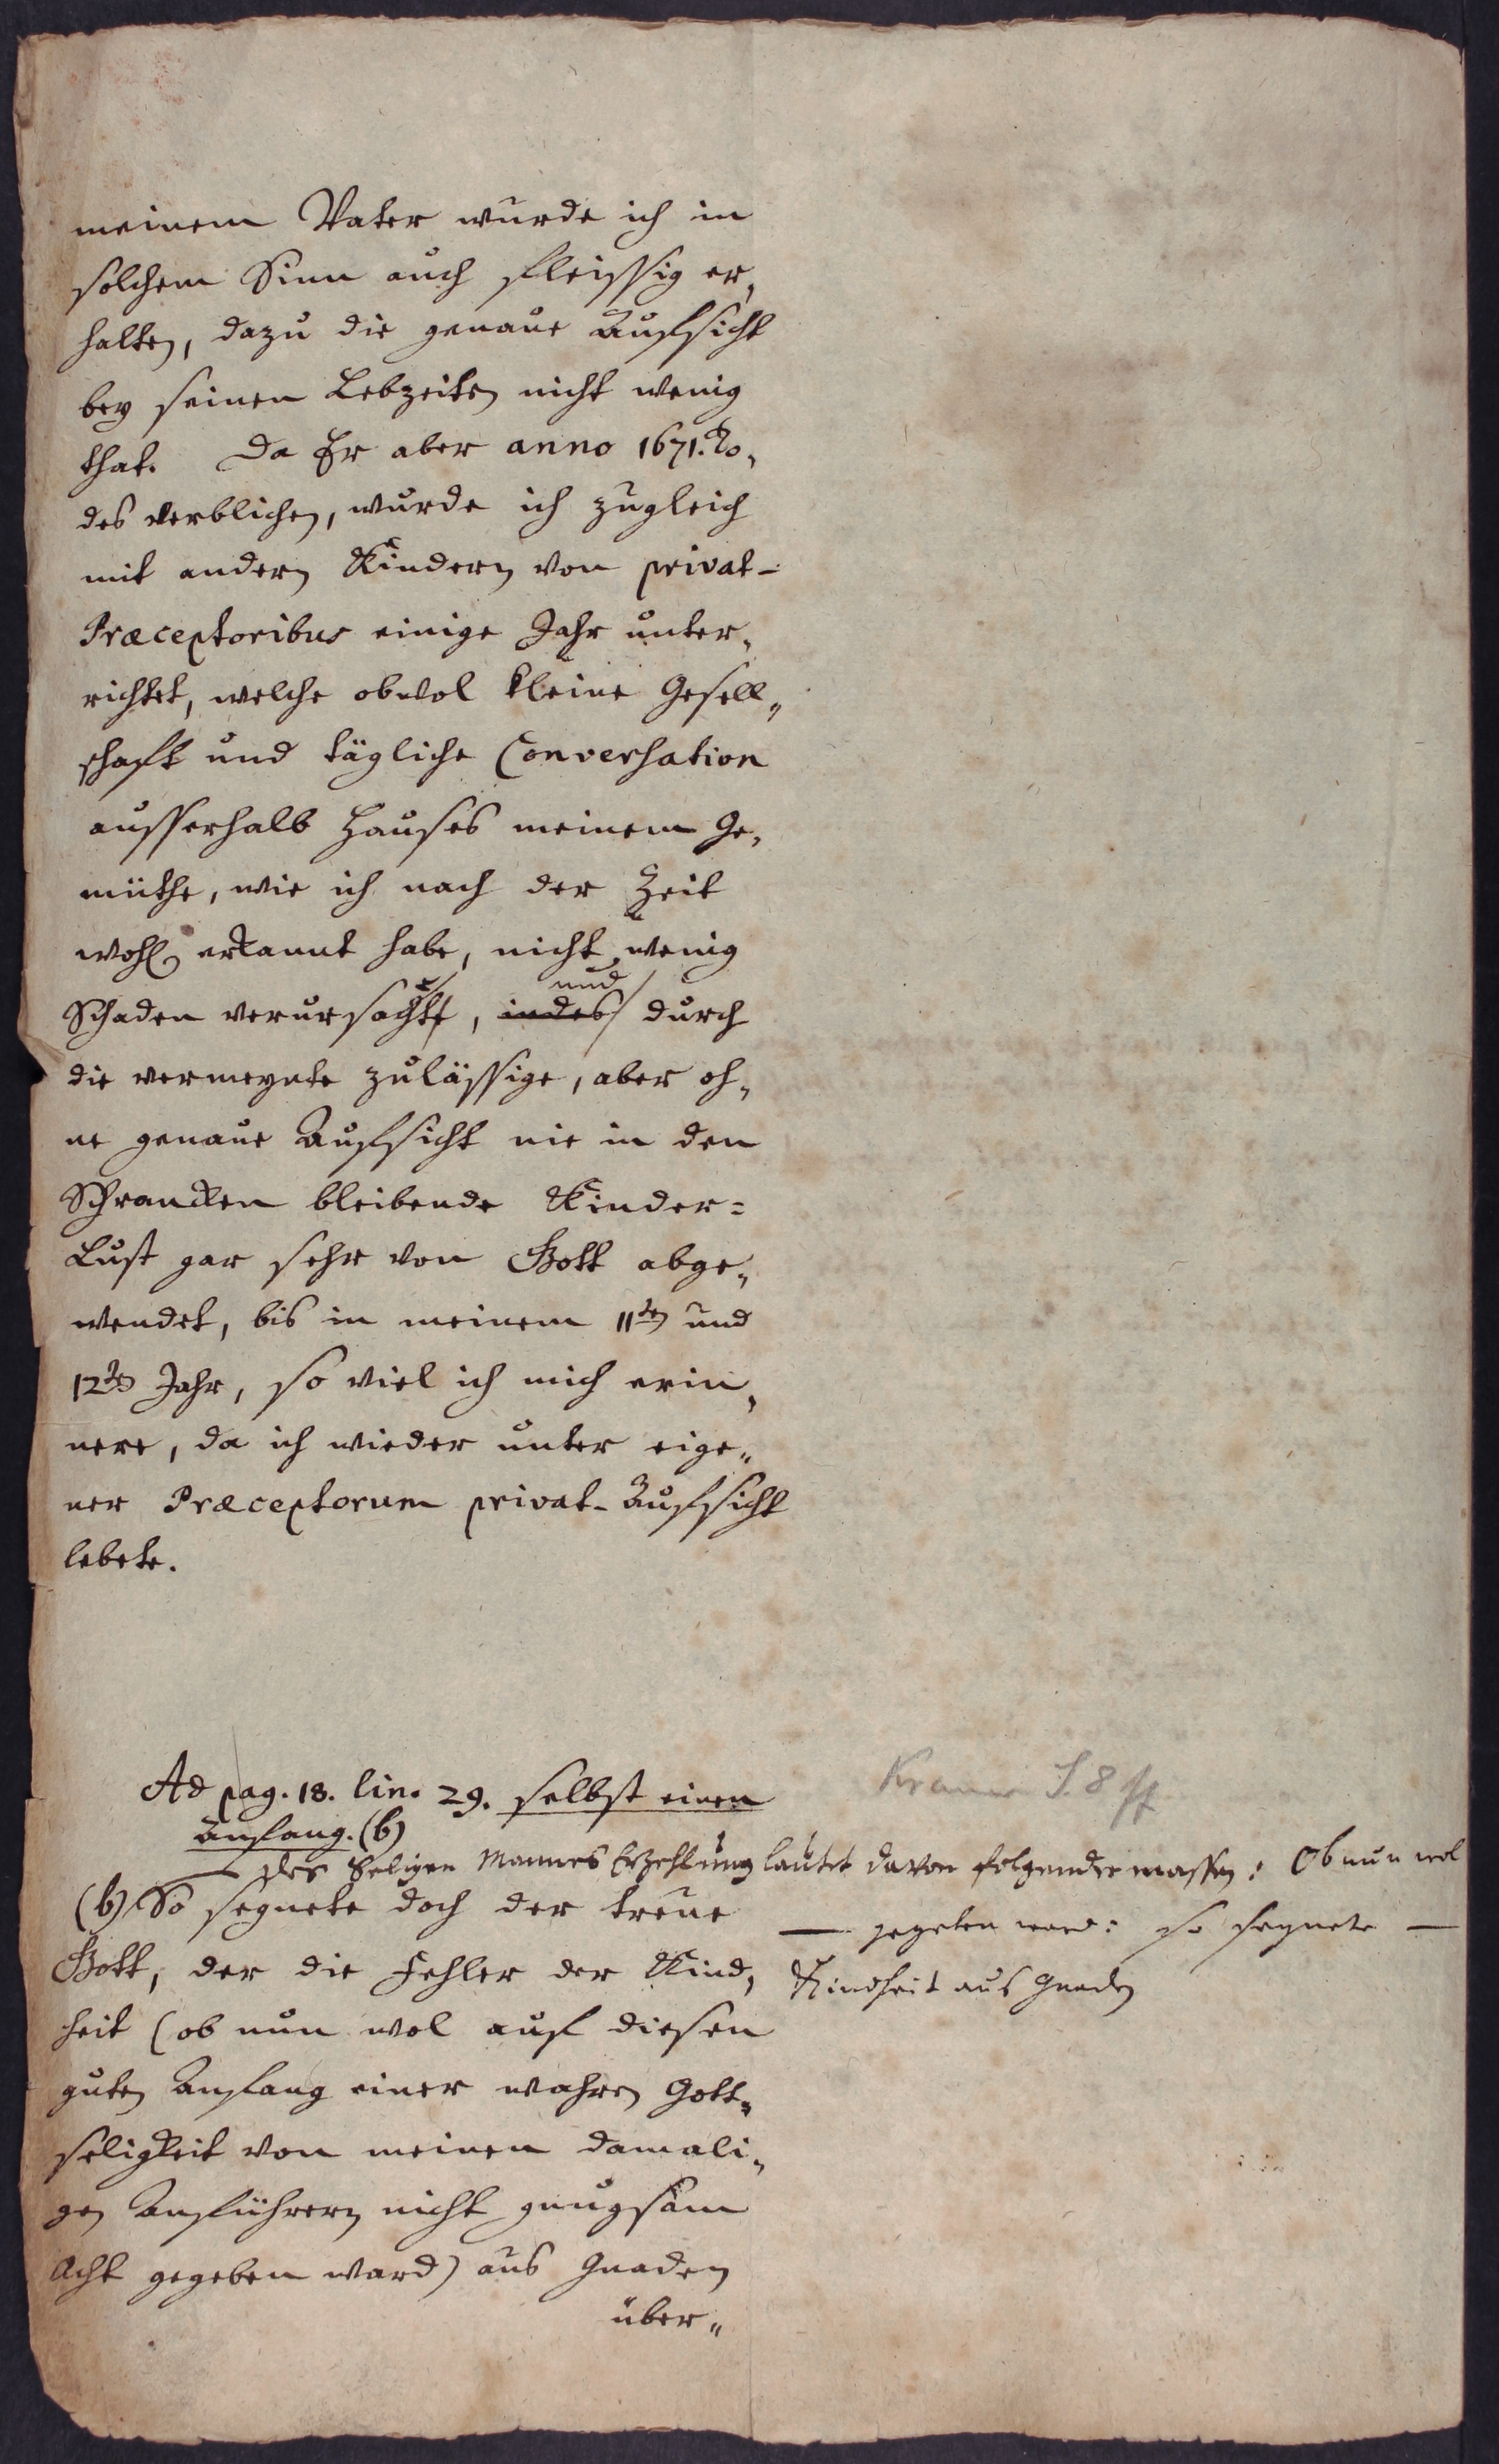 meinem Vater wurde ich in
solchem Sinn auch fleissig er„
halten, dazu die genaue Aufsicht
bey seinen Lebzeiten nicht wenig
that. Da Er aber anno 1671. To„
des verblichen, wurde ich zugleich
mit andern Kindern von privat-
Præceptoribus einige Jahr unter„
richtet, welche obwol kleine Gesell„
schaft und tägliche Conversation
ausserhalb Hauses meinem Ge„
müthe, wie ich nach der Zeit
wohl erkannt habe, nicht wenig
und
Schaden verursacht, indes durch
die vermeynte zulässige, aber oh„
ne genaue Aufsicht nie in den
Schrancken bleibende Kinder=
Lust gar sehr von Gott abge„
wendet, bis in meinem 11ten und
12ten Jahr, so viel ich mich erin„
nere, da ich wieder unter eige„
ner Præceptorum privat-Aufsicht
lebete.
Kramer S. 8 ff
Ad pag. 18. lin. 29. selbst einen
Anfang. (b)
Des Seligen Mannes Erzehlung lautet davon folgender massen: Ob nun wol
— gegeben ward: so segnete —
Kindheit aus Gnaden
(b) So segnete doch der treue
Gott, der die Fehler der Kind„
heit (ob nun wol auf diesen
guten Anfang einer wahren Gott„
seligkeit von meinen damali„
gen Anführern nicht gnugsam
Acht gegeben ward) aus Gnaden
über„